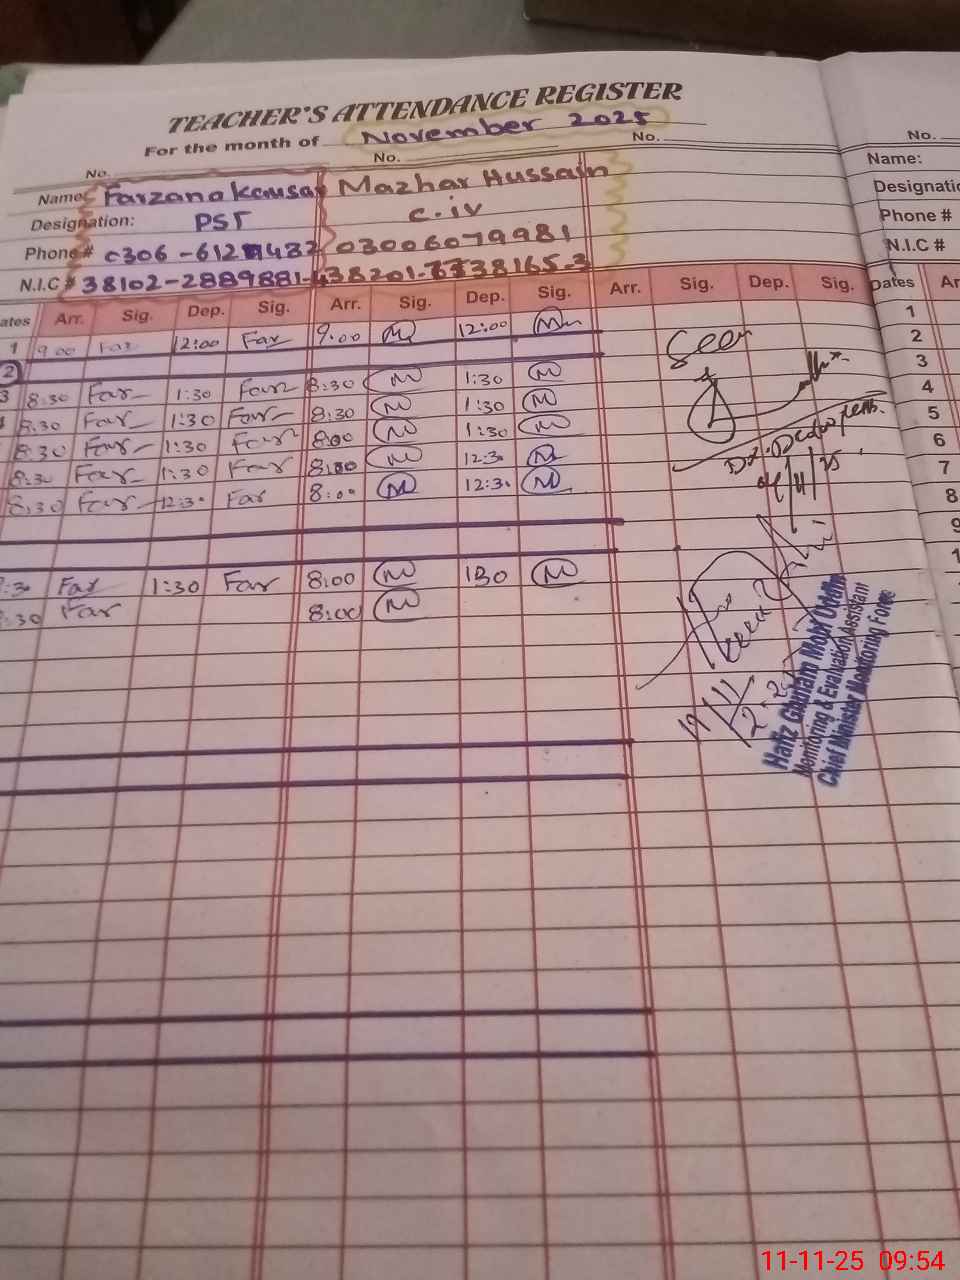 TEACHER'S ATTENDANCE REGISTER
For the month of November 2025
No. No. No. No.
Name: Farzana Kausar Mazhar Hussain Name:
Designation: PST C.iv Designatio
Phone # 0306-612 432 03006079981 Phone #
N.I.C # 38102-2889881- 38201- 38165-3 N.I.C #
ates Arr. Sig. Dep. Sig. Arr. Sig. Dep. Sig. Arr. Sig. Dep. Sig. Dates Ar
1 9.00 Far 12:00 Far 9.00 M 12:00 1
2 Seen 2
3 8:30 Far 1:30 Far 8:30 M 1:30 M 3
8:30 Far 1:30 Far 8:30 M 1:30 M 4
8:30 Far 1:30 Far 8:00 M 1:30 M 5
8:30 Far 1:30 Far 8:00 M 12:30 M 6
8:30 Far 12:30 Far 8:00 M 12:30 M 7
8
9
:30 Far 1:30 Far 8:00 M 130 M 1
:30 Far 8:00 M
Hafiz Ghulam Mohi Uddin
Monitoring & Evaluation Assistant
Chief Minister Monitoring Force
11-11-25 09:54